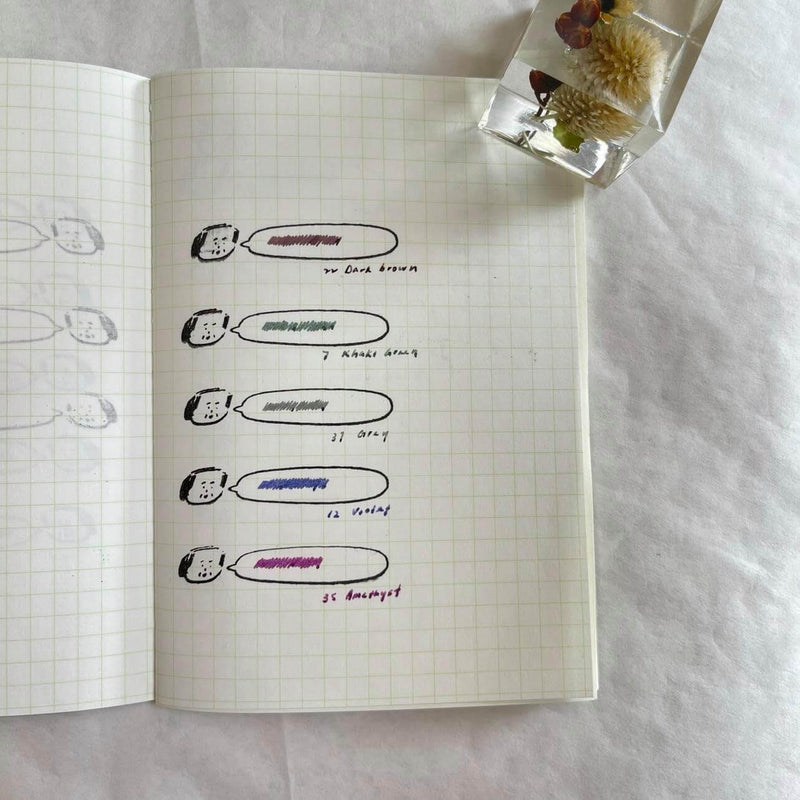 22 Dark brown
7 Khaki Green
37 Gray
12 Violet
35 Amethyst